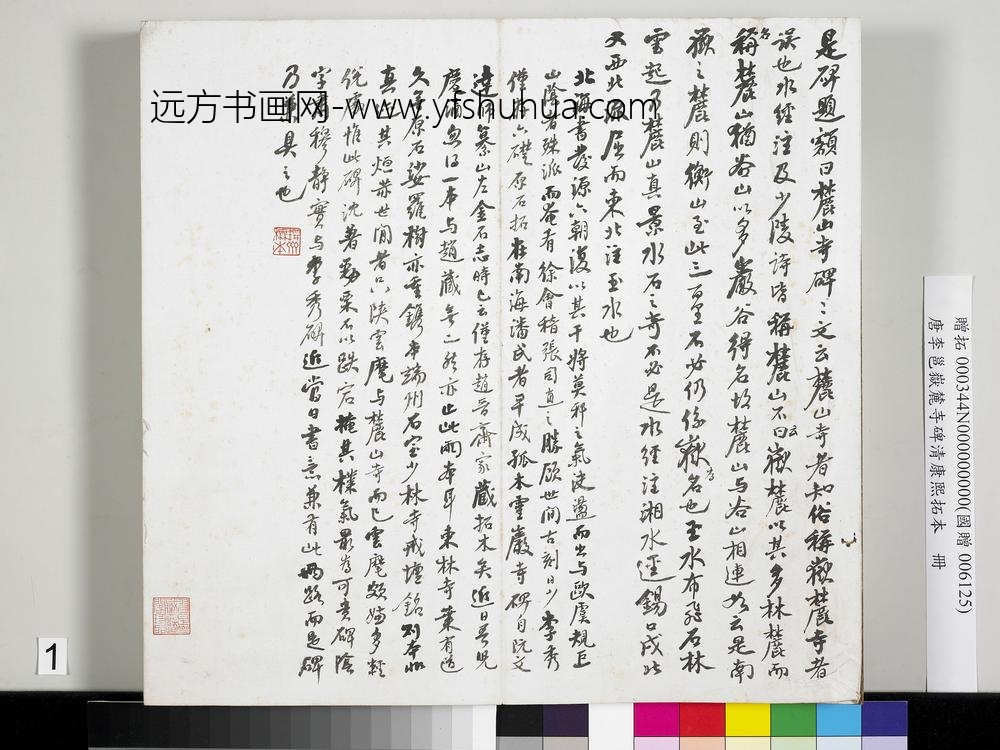 是碑題額曰麓山寺碑碑文云麓山寺者知俗稱嶽麓寺者
誤也水經注及少陵詩皆稱麓山不曰嶽麓以其多林麓而
名
云
稱麓山猶谷山以多巖谷得名故麓山與谷山相連也云是南
嶽之麓則衡山至此三百里不必仍係嶽名也至水布飛石林
雲起乃麓山真景水石之奇不必是水經注湘水逕錫口戍北
又西北屈而東北注玉水也
北海書發源六朝復以其干將莫邪之氣決盪而出與歐虞規巨
山陰者殊派而奄有徐會稽張司直之勝顧世間古刻日少李秀
僅存六礎原石拓在南海潘氏者早成孤本靈巖寺碑自阮文
達纂山左金石志時已云僅存趙晉齋家藏拓本矣近日吾兄
慶涵忽得一本與趙藏無二然亦止此兩本耳東林寺葉有道
久無原石娑羅樹亦重鐫本端州石室少林寺戒壇銘
真其烜赫世間者只陝雲麾與麓山寺而已雲麾頗嫌多輕
佻處惟此碑沈著勁栗不以跌宕掩其樸氣最為可貴碑陰
字肅穆靜實與李秀碑近當日書意兼有此兩路而是碑
乃具之也
贈拓 000344N000000000(國贈 006125)
唐李邕嶽麓寺碑清康熙拓本 冊
1
远方书画网-www.yfshuhua.com